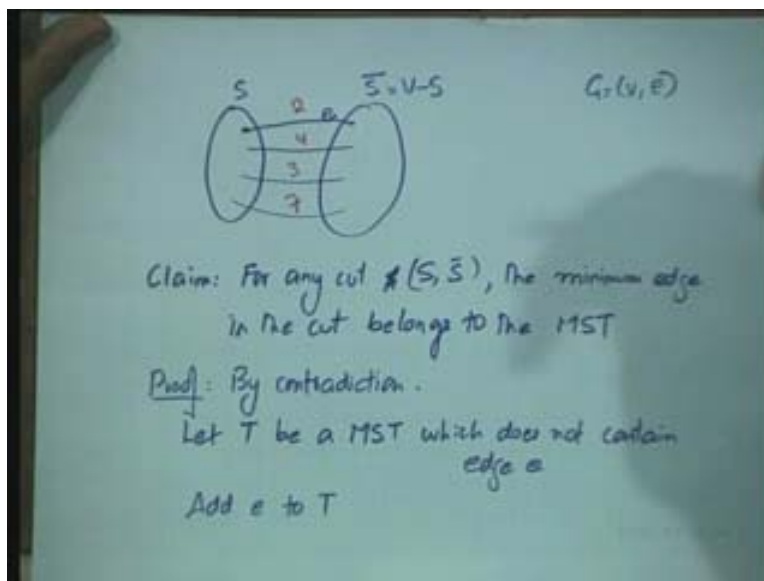 S S̄ = V-S G=(V,E)
2
e
4
3
7
Claim: For any cut (S, S̄), the minimum edge
in the cut belongs to the MST
Proof: By contradiction.
Let T be a MST which does not contain
edge e
Add e to T